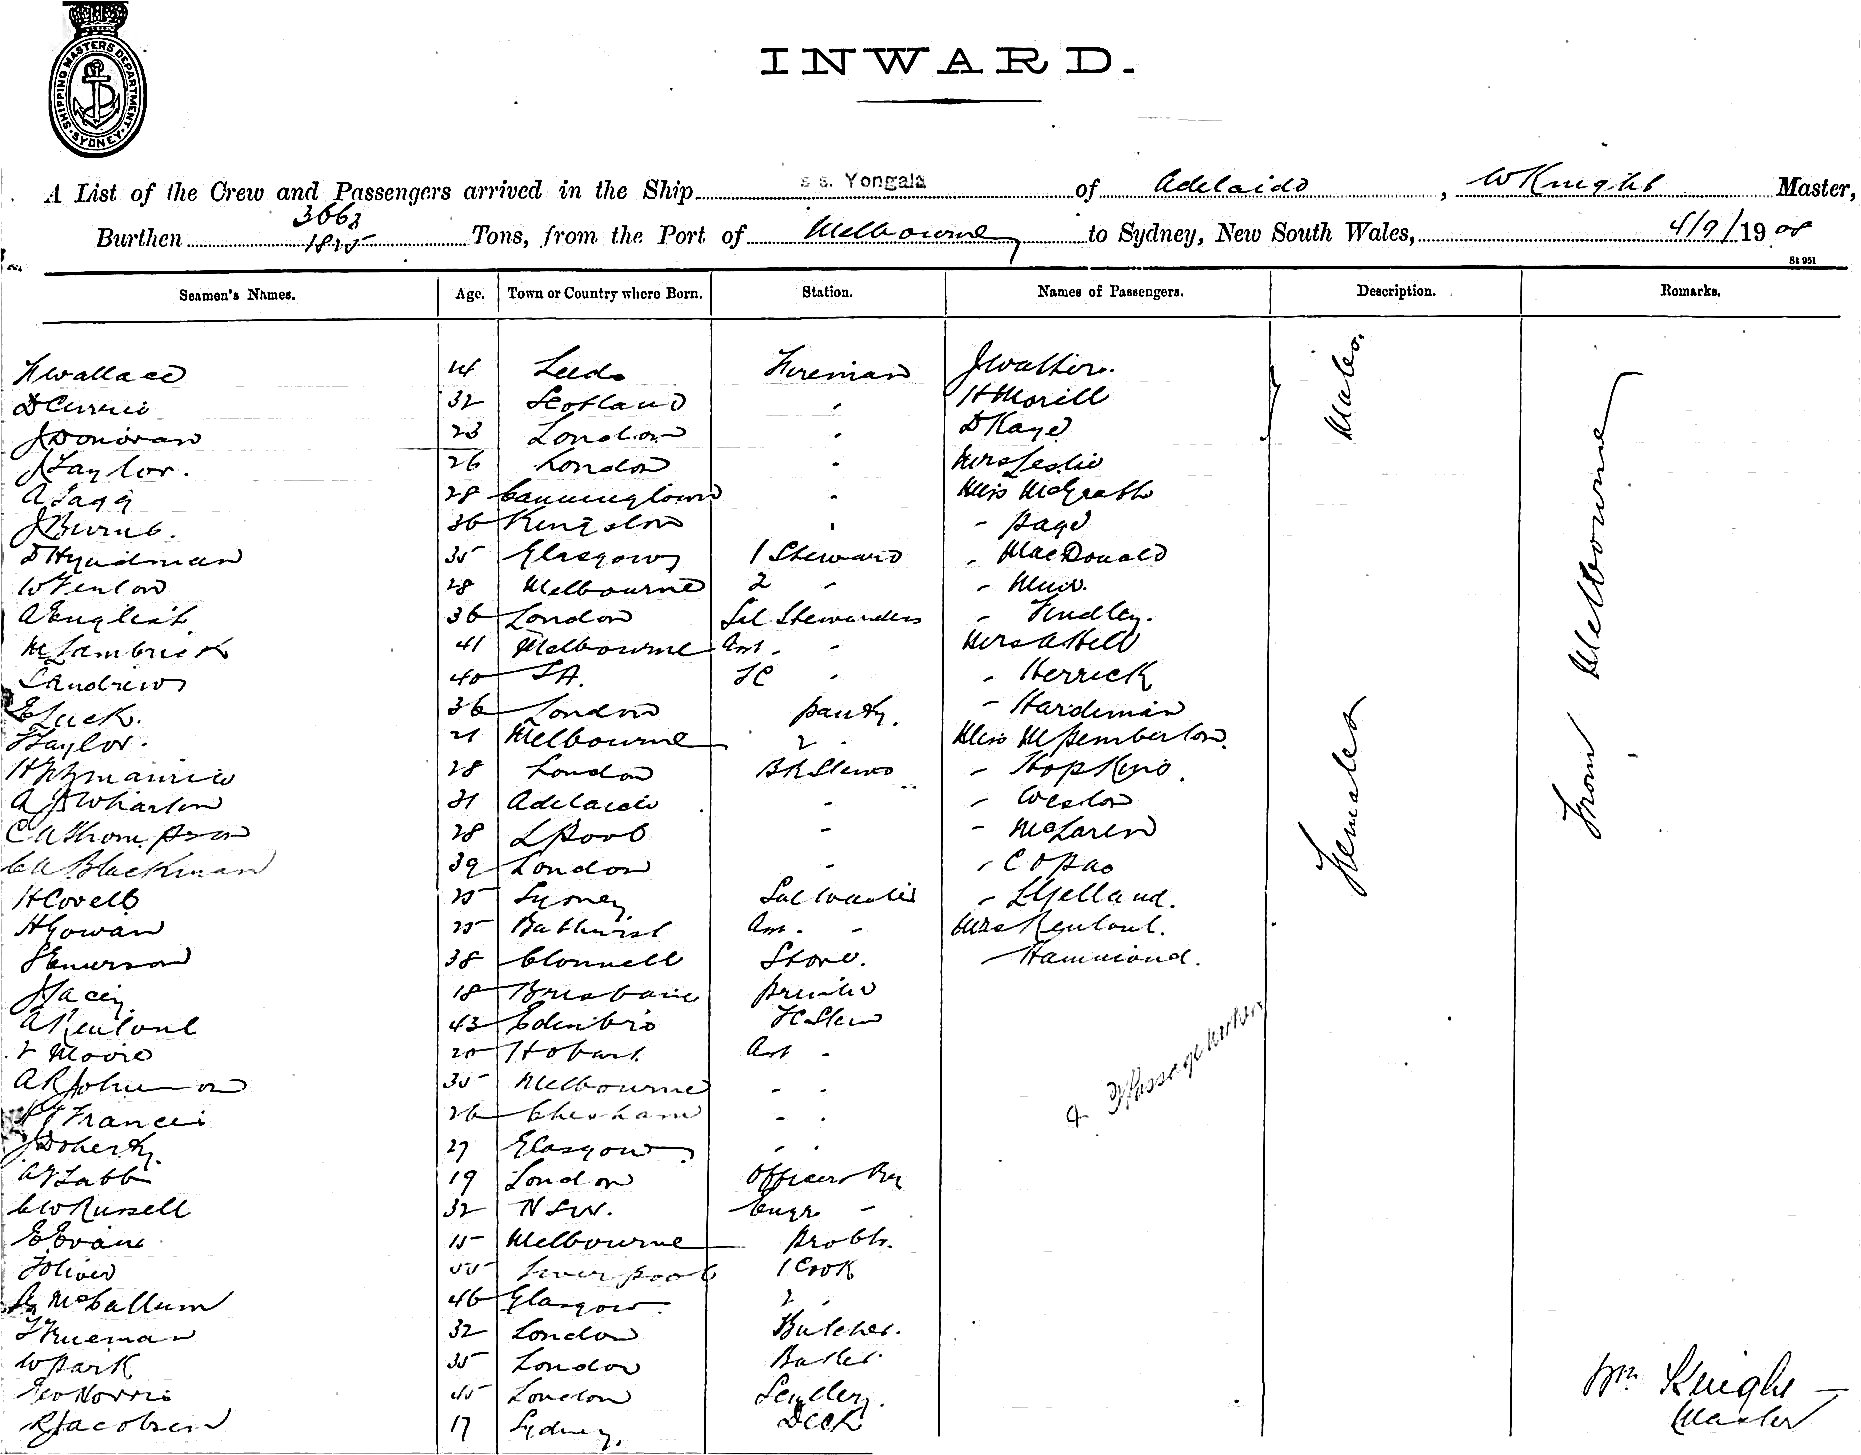 SHIPPING MASTERS DEPARTMENT. SYDNEY
INWARD.
A List of the Crew and Passengers arrived in the Ship s s. Yongala of Adelaide, W Knight Master,
Burthen 3663 1825 Tons, from the Port of Melbourne to Sydney, New South Wales, 4/9/1908
81 951
Seamen's Names. Age. Town or Country where Born. Station. Names of Passengers. Description. Remarks.
Wallace Leeds Fireman J Walker. Males.
D Currie 32 Scotland " H Morill
J Donovan 23 London " D Kaye
J Taylor. 26 London " Mrs Leslie
A Tagg 28 Canningtown " Miss McGrath
J Burns. 36 Kingston " - Page
D Hyndman 35 Glasgow 1 Steward - MacDonald
W Fenton 28 Melbourne 2 " - Muir.
A English 36 London Sal Stewardess - Findley.
M Lambrick 41 Melbourne Ast. " Mrs A Hill
S Andrews 40 S A. " - Herrick
E Luck. 36 London Pantry. - Hardiman
Taylor. 21 Melbourne 2 " Miss M Pemberton.
H Fitzmaurice 28 London B R Stewd - Hopkins.
A J Wharton 31 Adelaide " - Weston
C A Thompson 28 L Pool " - McLaren
C A Blackman 39 London "
H Covell 25 Sydney Sal Waiter - L Yelland.
H Gowan 25 Bathurst Ast. " Mrs Rentoul.
Emerson 38 Store. - Hammond.
J Lacey 18 Brisbane Printer
A Rentoul 43 Edinbro F C Stew
Moore 20 Hobart Ast "
A R Johnson 35 Melbourne " "
Francis 26 Chesham " "
J Doherty. 27 Glasgow " "
A F Tabb 19 London Officers Boy
C W Russell 32 N S W. Engr "
E Evans 15 Melbourne
F Oliver 55 Liverpool 1 Cook
McCallum 46 Glasgow. 2 "
Trueman 32 London Butcher.
W Park 35 London Baker.
Geo Norris 45 London Scullery.
R Jacobsen 17 Sydney. Deck
Females
From Melbourne
Wm Knight
Master